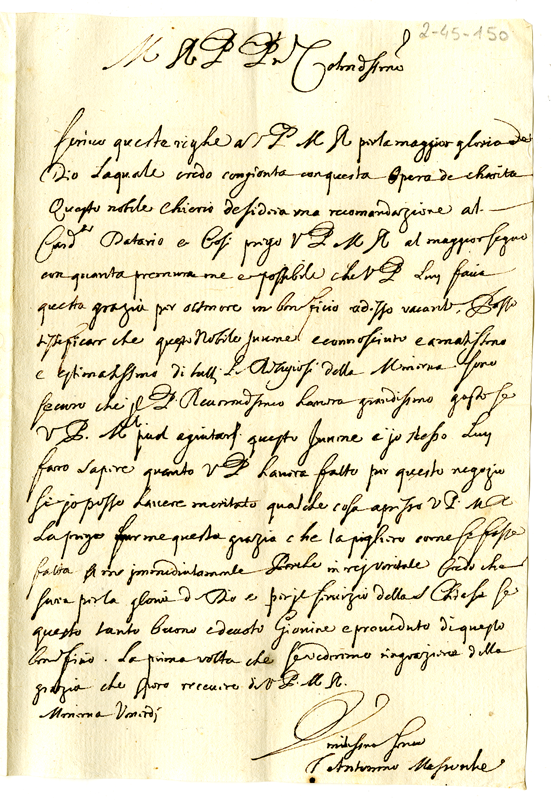 2-45-150
M R P P
Colendissimo
scrivo queste righe a V P M R per la maggior gloria de
Dio laquale credo congionta con questa opera de charita
Questo nobile chierico desidera una recomandazione al
Card.le Datario e cosi prego V P M R al maggior segno
con quanta premura me e possibile che V P lui facia
questa grazia per ottenere un beneficio adesso vacante. Posso
testificare che questo Nobile Juvine e connosciuto e amatissimo
e estimatissimo di tutti le Religiosi della Minerva. sono
securo che il P Reverendissimo havera grandissimo gusto se
V P. M R puol agiutare questo Juvine e jo stesso lui
faro sapere quanto V P havera fatto per questo negozio
se jo posso havere meritato qualche cosa apresso V P. M R
la prego farme questa grazia che la pigliero come se fosse
fatta a me immediatamente Perche in rei veritate credo che
sara per la gloria d Dio e per il servizio della S Chiesa se
questo tanto buono e devoto Giovine e proveduto di questo
beneficio. La prima volta che se vederemo ringraziaro della
grazia che spero recevere di V P M R.
Minerva Venerdi
servo
F Antonino Massoulie